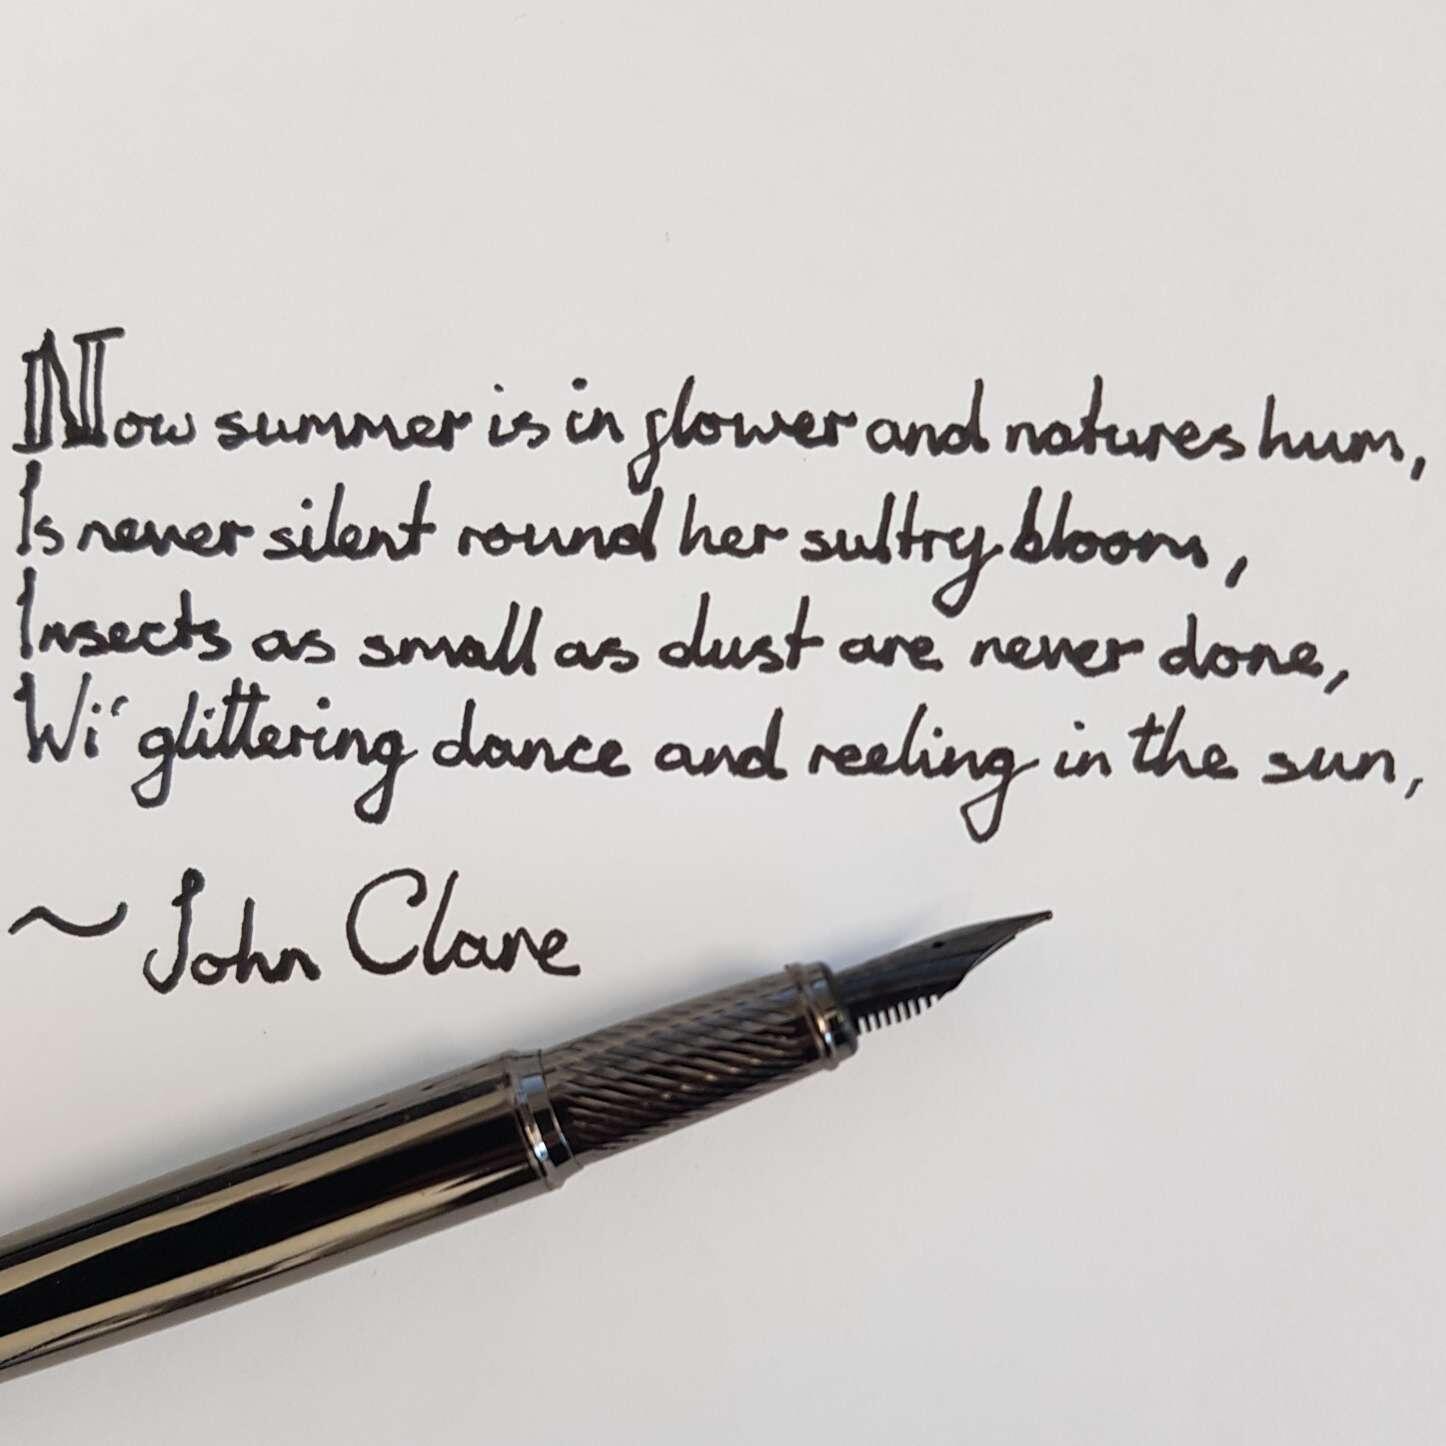 Now summer is in flower and natures hum,
Is never silent round her sultry bloom,
Insects as small as dust are never done,
Wi' glittering dance and reeling in the sun,
~ John Clare